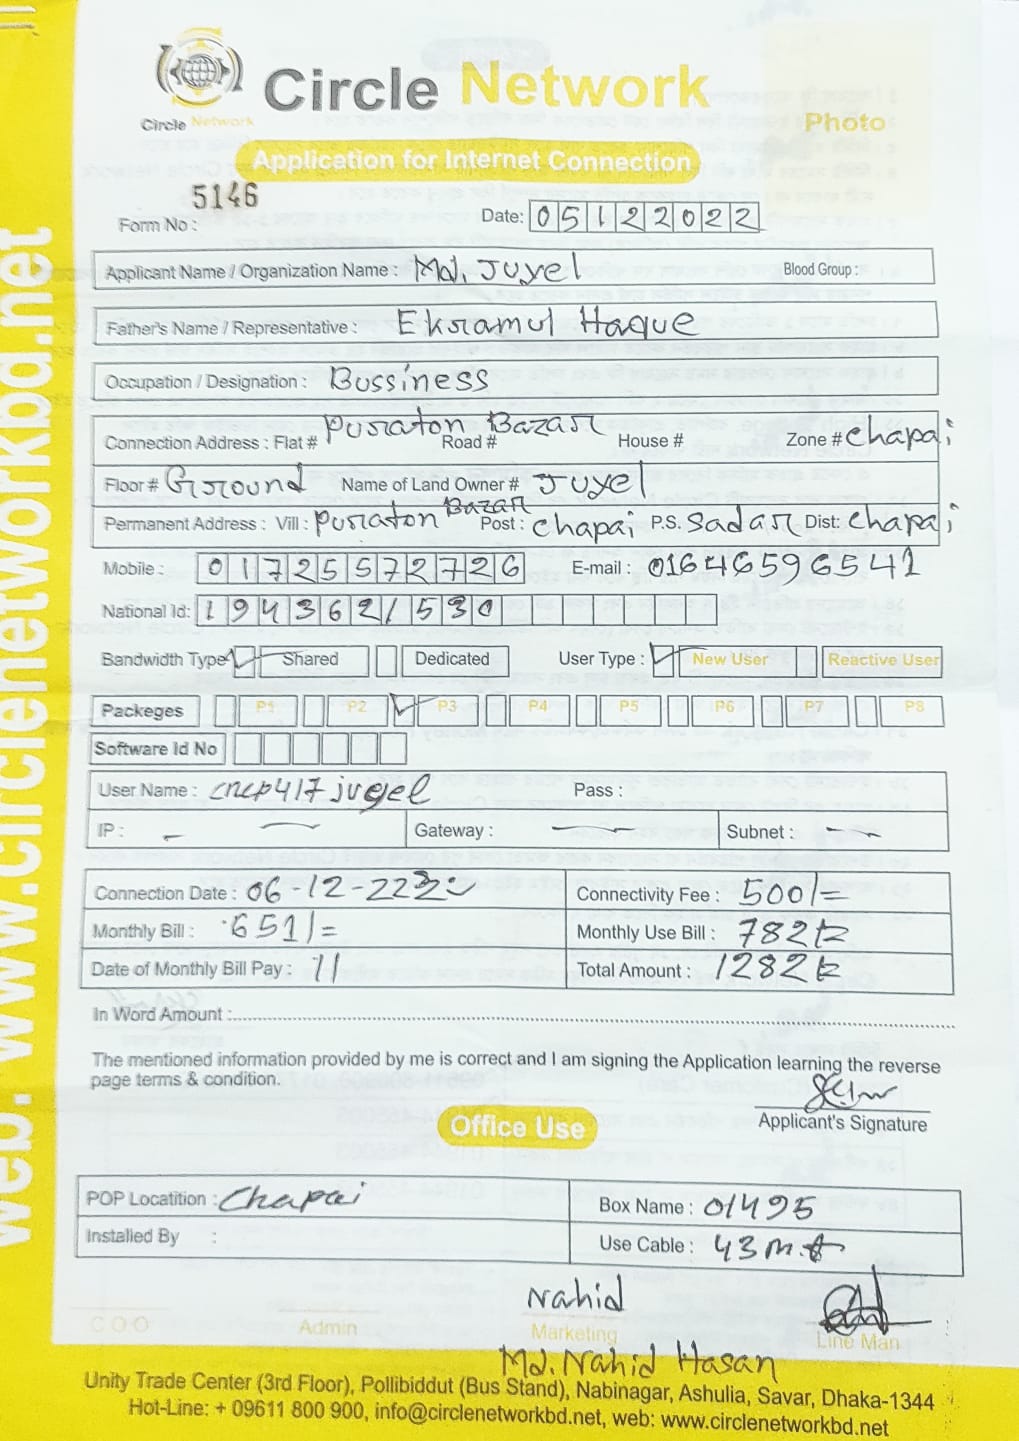 web: www.circlenetworkbd.net
Circle Network
Circle Network
Photo
Application for Internet Connection
5146
Form No :
Date: 05122022
Applicant Name / Organization Name : Md. Juyel Blood Group :
Father's Name / Representative : Ekramul Haque
Occupation / Designation : Bussiness
Connection Address : Flat # Puraton Bazar Road # House # Zone # Chapai
Floor # Ground Name of Land Owner # Juyel
Permanent Address : Vill : Puraton Bazar Post : Chapai P.S. Sadar Dist: Chapai
Mobile : 01725572726 E-mail : 01646596541
National Id: 1943621530
Bandwidth Type Shared Dedicated User Type : New User Reactive User
Packeges P1 P2 P3 P4 P5 P6 P7 P8
Software Id No
User Name : cncp417juyel Pass :
IP : Gateway : Subnet :
Connection Date : 06-12-22 Connectivity Fee : 500/=
Monthly Bill : 651/= Monthly Use Bill : 782tk
Date of Monthly Bill Pay : 11 Total Amount : 1282tk
In Word Amount :
The mentioned information provided by me is correct and I am signing the Application learning the reverse
page terms & condition.
Applicant's Signature
Office Use
POP Locatition : Chapai Box Name : 01495
Installed By : Use Cable : 43 m.t
Nahid
COO Admin Marketing Line Man
Md. Nahid Hasan
Unity Trade Center (3rd Floor), Pollibiddut (Bus Stand), Nabinagar, Ashulia, Savar, Dhaka-1344
Hot-Line: + 09611 800 900, info@circlenetworkbd.net, web: www.circlenetworkbd.net